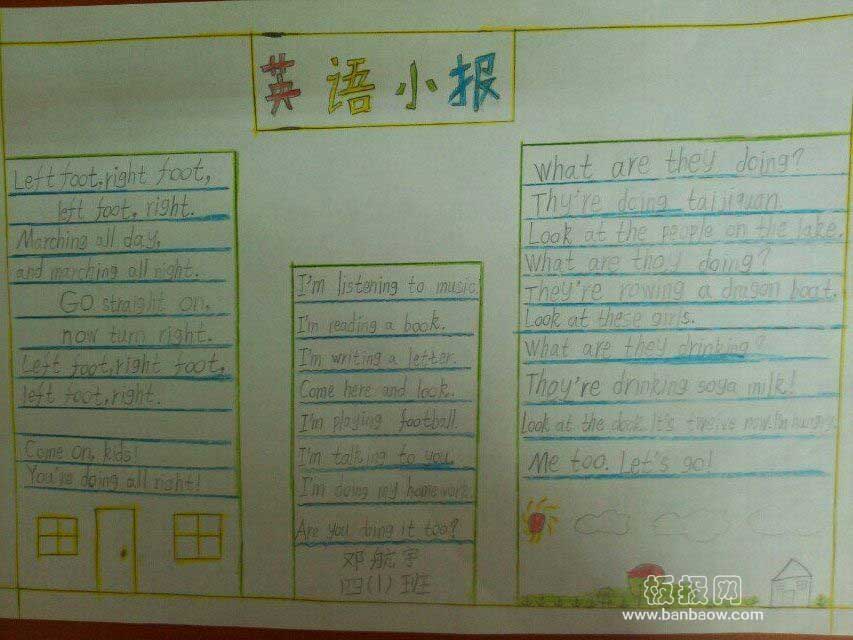 英语小报
Left foot, right foot,
left foot, right.
Marching all day,
and marching all night.
Go straight on,
now turn right.
Left foot, right foot,
left foot, right.
Come on, kids!
You're doing all right!
I'm listening to music
I'm reading a book.
I'm writing a letter.
Come here and look.
I'm playing football.
I'm talking to you.
I'm doing my homework.
Are you doing it too?
邓航宇
四(1)班
What are they doing?
Thy're doing taijiquan.
Look at the people on the lake.
What are they doing?
They're rowing a dragon boat.
Look at these girls.
What are they drinking?
They're drinking soya milk!
Look at the It's twelve now. I'm hungry.
Me too. Let's go!
板报网
www.banbaow.com